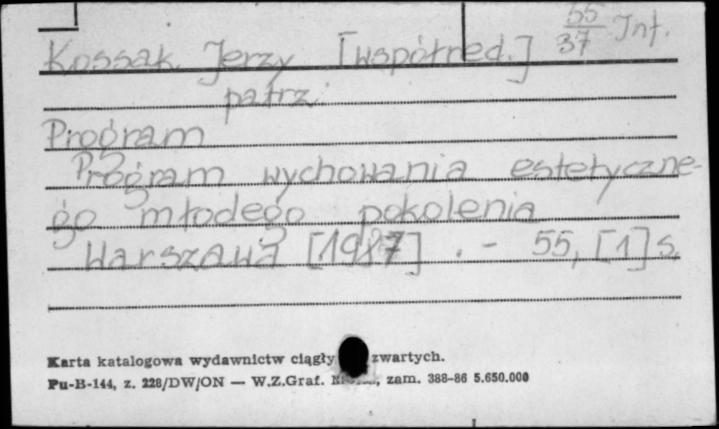 55
37 Inf.
Kossak Jerzy [współred.]
patrz:
Program
Program wychowania estetyczne-
go młodego pokolenia
Warszawa [1987] . - 55, [1] s.
Karta katalogowa wydawnictw ciągły zwartych.
Pu-B-144, z. 228/DW/ON — W.Z.Graf. zam. 388-86 5.650.000